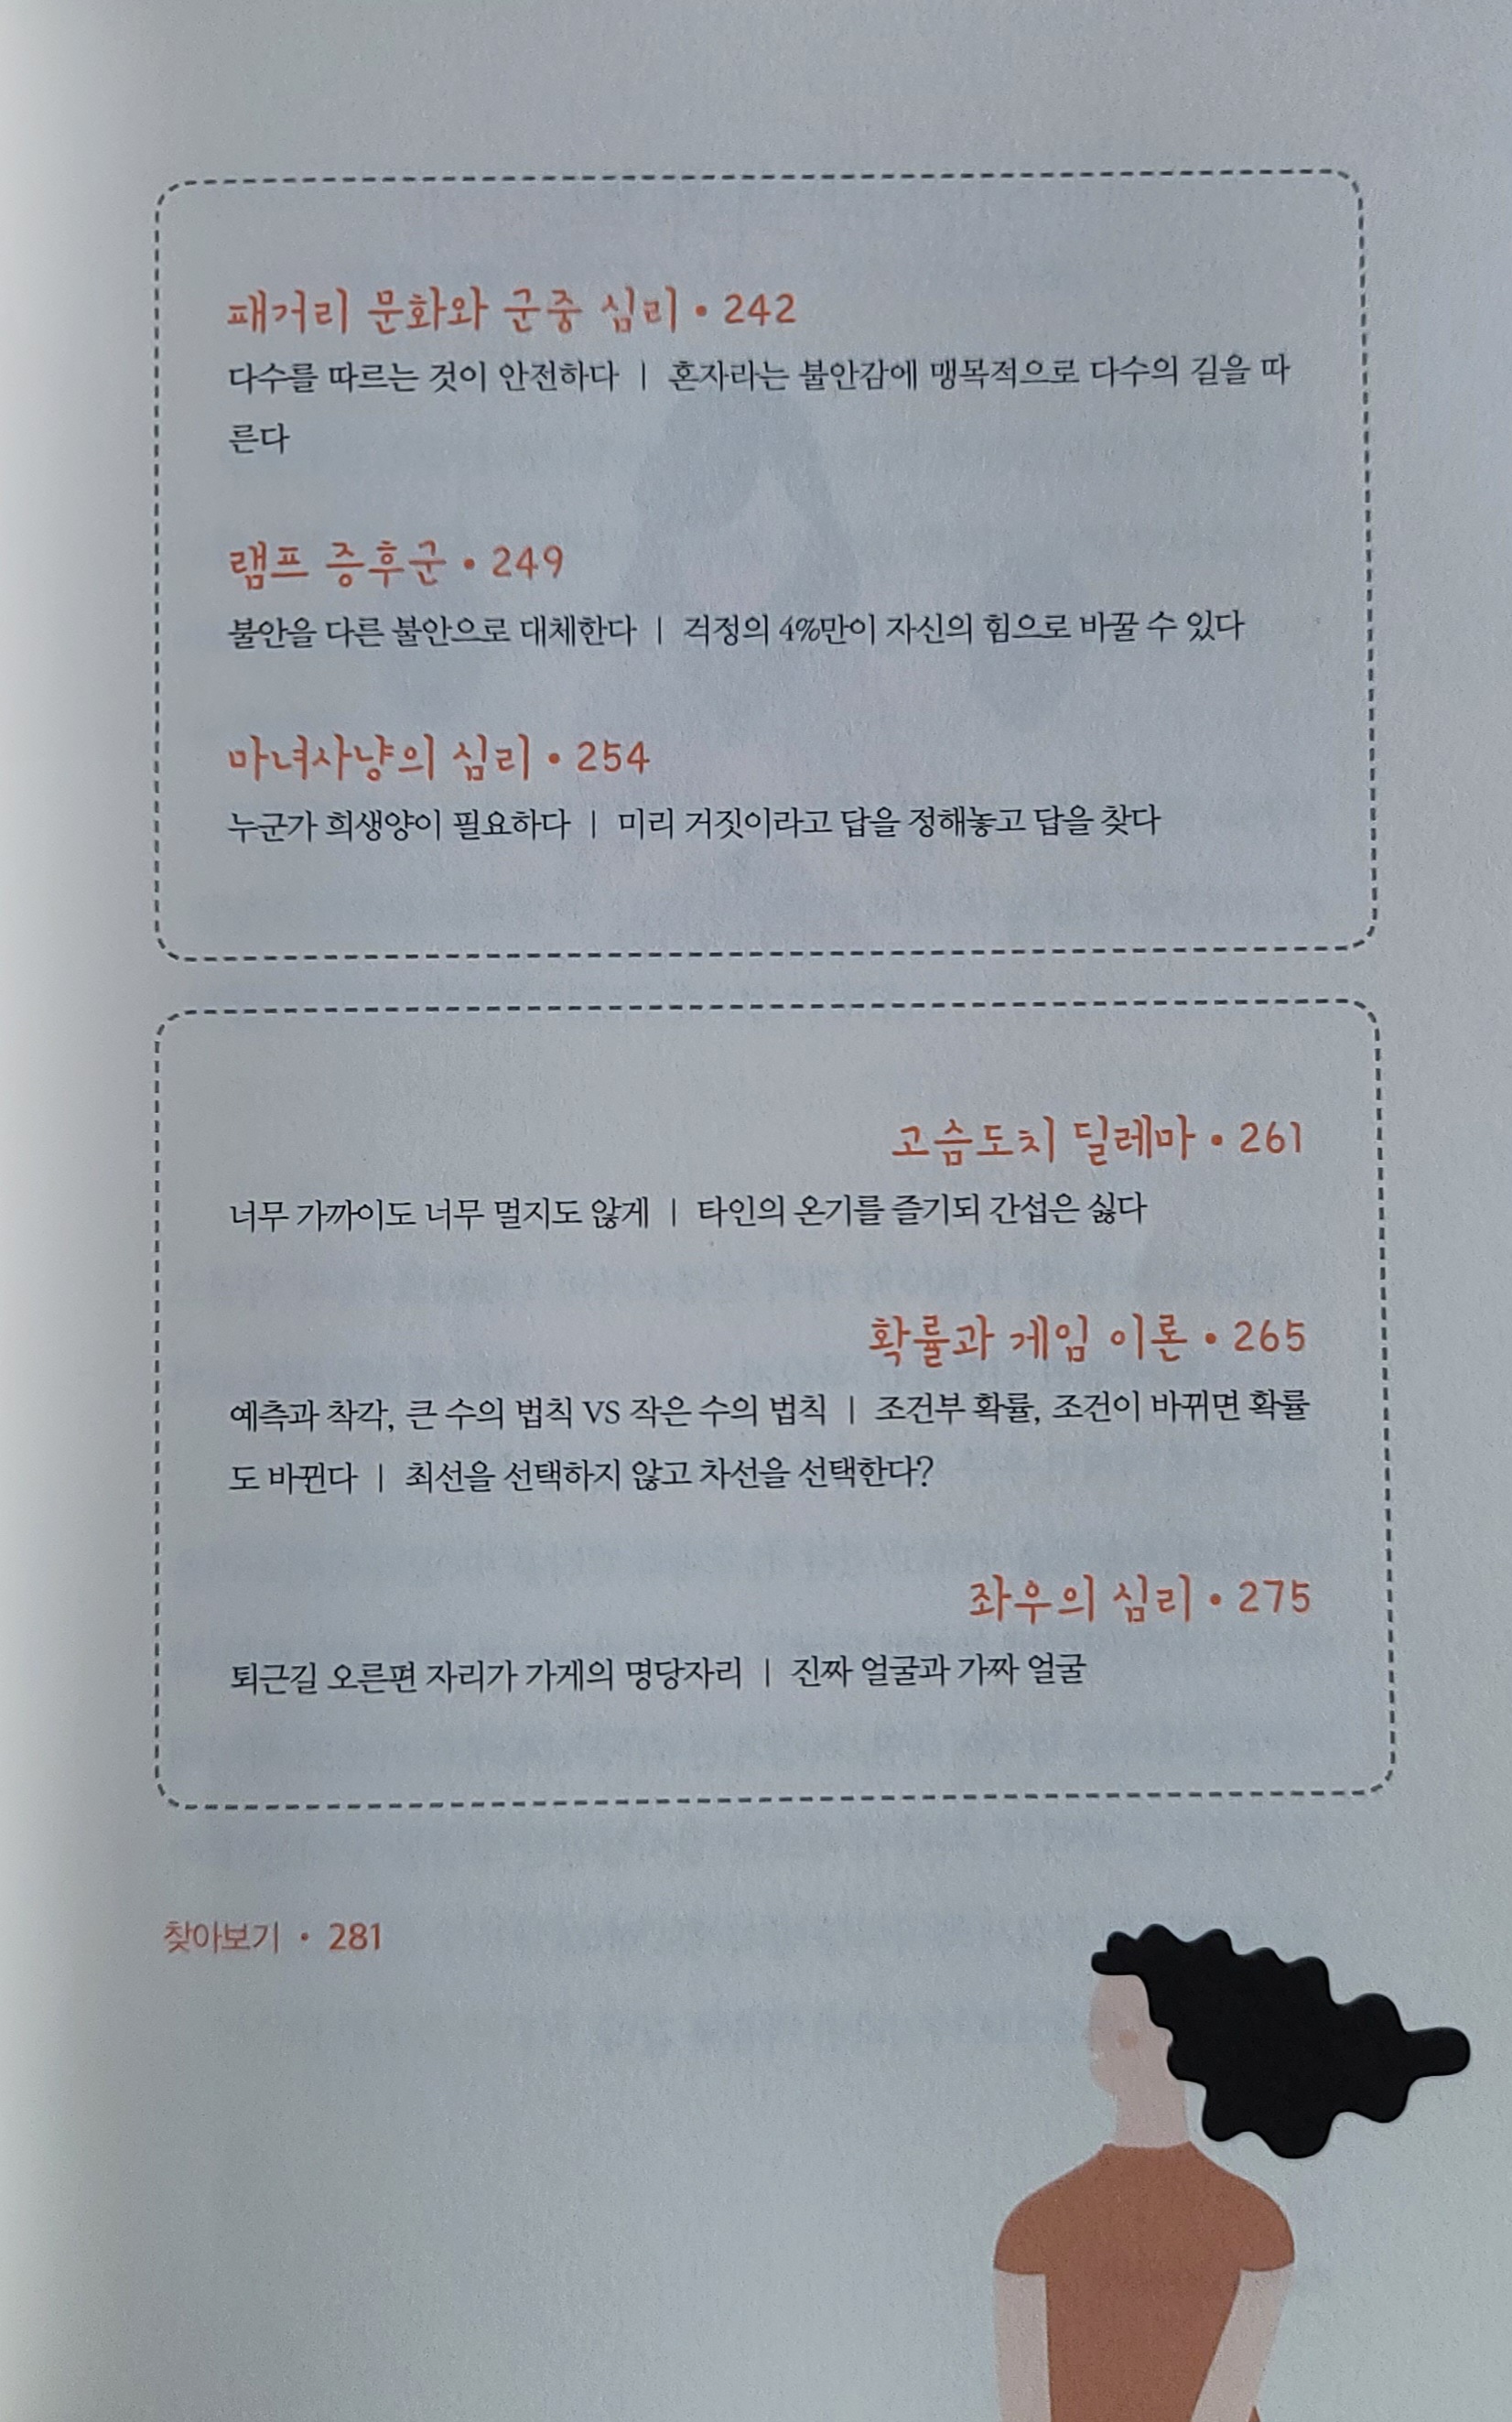 패거리 문화와 군중 심리 • 242
다수를 따르는 것이 안전하다 | 혼자라는 불안감에 맹목적으로 다수의 길을 따
른다
램프 증후군 • 249
불안을 다른 불안으로 대체한다 | 걱정의 4%만이 자신의 힘으로 바꿀 수 있다
마녀사냥의 심리 • 254
누군가 희생양이 필요하다 | 미리 거짓이라고 답을 정해놓고 답을 찾다
고슴도치 딜레마 • 261
너무 가까이도 너무 멀지도 않게 | 타인의 온기를 즐기되 간섭은 싫다
확률과 게임 이론 • 265
예측과 착각, 큰 수의 법칙 VS 작은 수의 법칙 | 조건부 확률, 조건이 바뀌면 확률
도 바뀐다 | 최선을 선택하지 않고 차선을 선택한다?
좌우의 심리 • 275
퇴근길 오른편 자리가 가게의 명당자리 | 진짜 얼굴과 가짜 얼굴
찾아보기 • 281